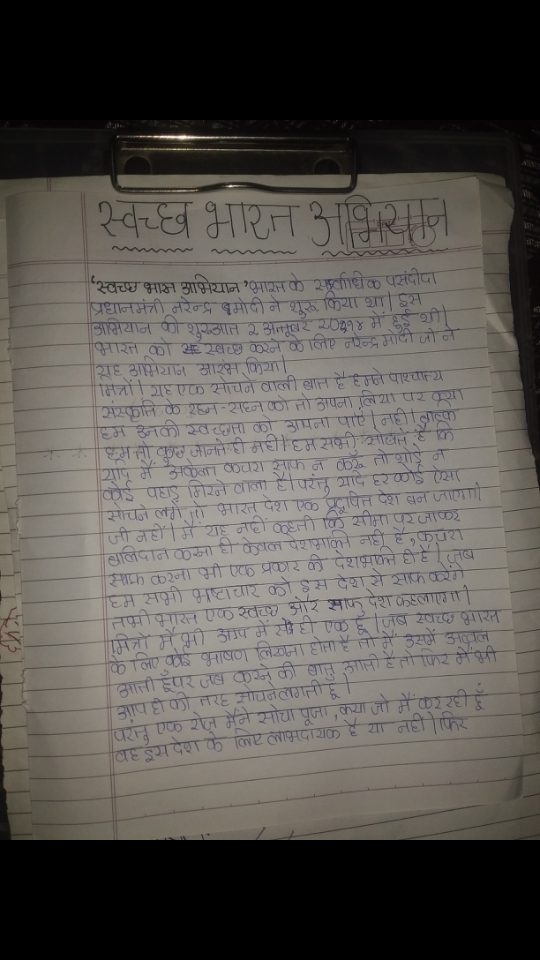 स्वच्छ भारत अभियान
'स्वच्छ भारत अभियान' भारत के सर्वाधिक पसंदीदा
प्रधानमंत्री नरेन्द्र मोदी ने शुरू किया था। इस
अभियान की शुरुआत २ अक्तूबर २०१४ में हुई थी।
भारत को स्वच्छ करने के लिए नरेन्द्र मोदी जी ने
यह अभियान आरंभ किया।
मित्रों। यह एक सोचने वाली बात है हमने पाश्चात्य
संस्कृति के रहन-सहन को तो अपना लिया पर क्या
हम उनकी स्वच्छता को अपना पाएं। नहीं। बल्कि
हम तो कुछ जानते ही नहीं। हम सभी सोचते है कि
यदि मैं अकेला कचरा साफ न करूँ तो थोड़े न
कोई पहाड़ गिरने वाला है। परंतु यदि हर कोई ऐसा
सोचने लगे तो भारत देश एक प्रदूषित देश बन जाएगा।
जी नहीं। मैं यह नहीं कहती कि सीमा पर जाकर
बलिदान करना ही केवल देशभक्ति नहीं है, कचरा
साफ करना भी एक प्रकार की देशभक्ति ही है। जब
हम सभी भ्रष्टाचार को इस देश से साफ करेंगे
तभी भारत एक स्वच्छ और साफ देश कहलाएगा।
मित्रों मैं भी आप में से ही एक हूँ। जब स्वच्छ भारत
के लिए कोई भाषण लिखना होता है तो मैं उसमें अव्वल
आती हूँ पर जब करने की बात आती है तो फिर मैं भी
आप ही की तरह सोचने लगती हूँ।
परंतु एक रोज़ मैंने सोचा पूजा, क्या जो मैं कर रही हूँ
वह इस देश के लिए लाभदायक है या नहीं। फिर